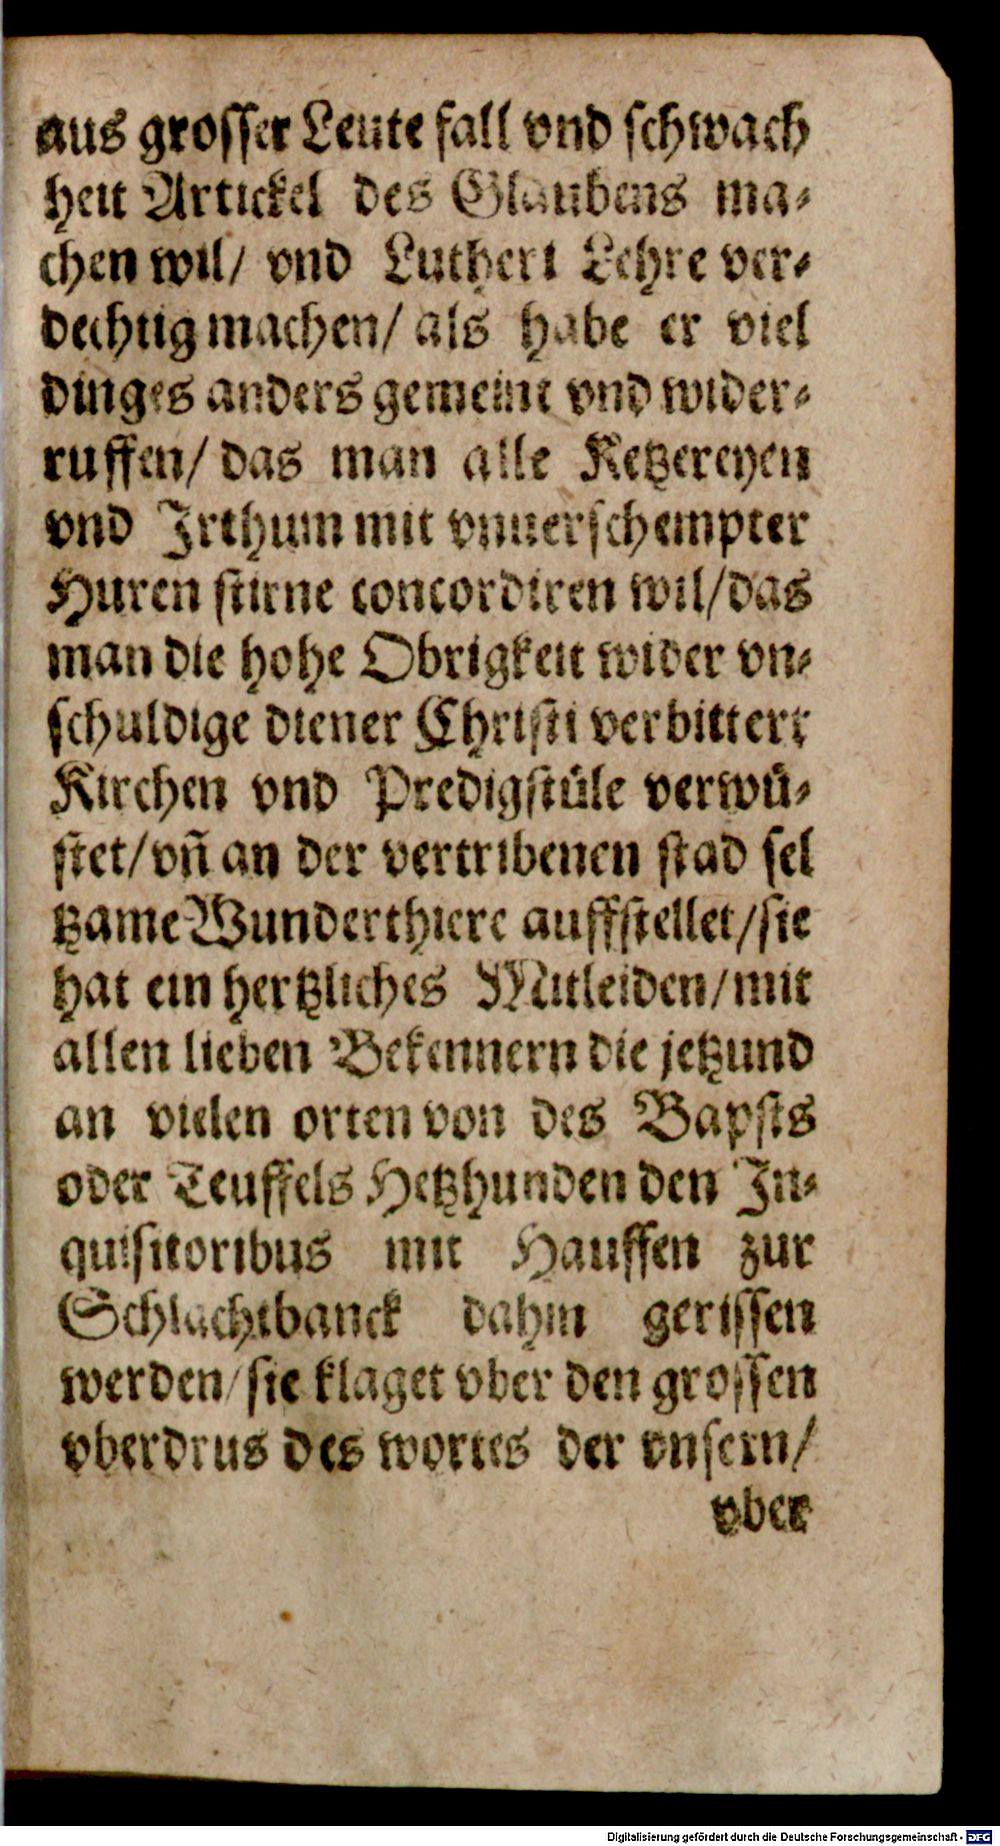 aus grosser Leute fall vnd schwach
heit Artickel des Glaubens ma-
chen wil/ vnd Lutheri Lehre ver-
dechtig machen/ als habe er viel
dinges anders gemeint vnd wider-
ruffen/ das man alle Ketzereyen
vnd Irthum mit vnuerschempter
Huren stirne concordiren wil/das
man die hohe Obrigkeit wider vn-
schuldige diener Christi verbittert
Kirchen vnd Predigstüle verwü-
stet/vñ an der vertribenen stad sel
tzame Wunderthiere auffstellet/sie
hat ein hertzliches Mitleiden/mit
allen lieben Bekennern die jetzund
an vielen orten von des Bapsts
oder Teuffels Hetzhunden den In-
quisitoribus mit Hauffen zur
Schlachtbanck dahin gerissen
werden/sie klaget vber den grossen
vberdrus des wortes der vnsern/
vber
Digitalisierung gefördert durch die Deutsche Forschungsgemeinschaft - DFG